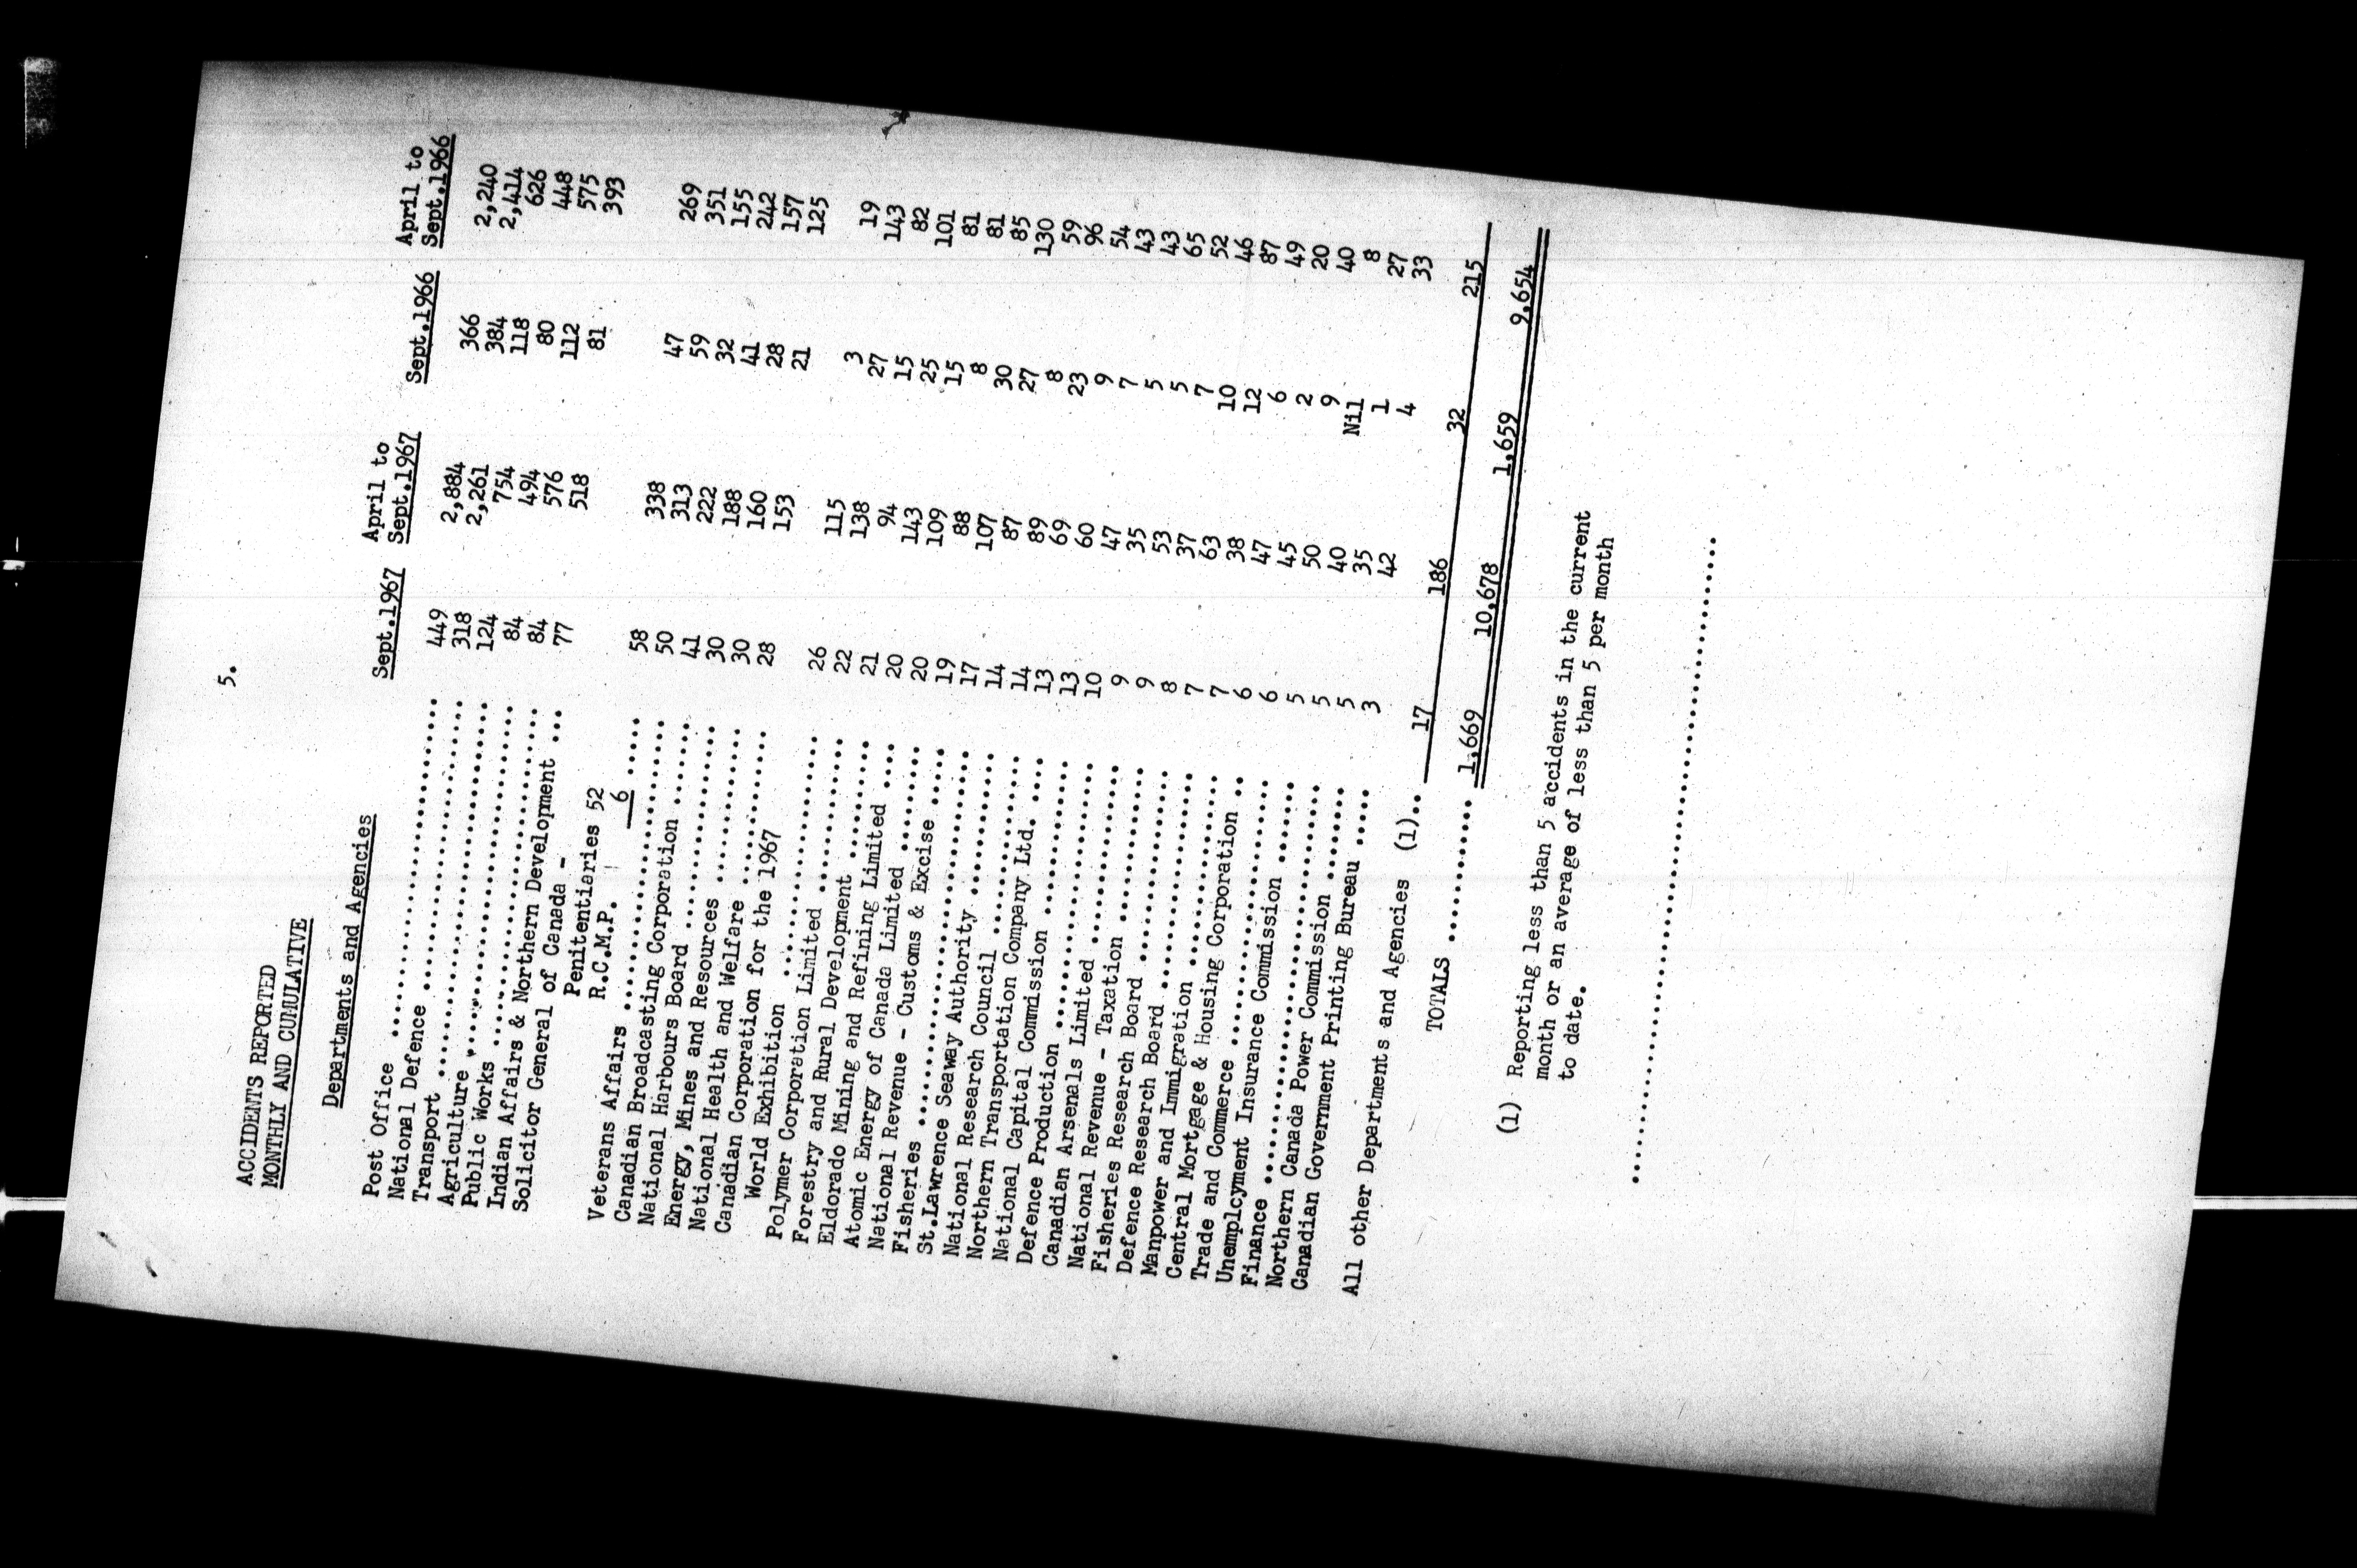 5.
ACCIDENTS REPORTED
MONTHLY AND CUMULATIVE
April to April to
Departments and Agencies Sept.1967 Sept.1967 Sept.1966 Sept.1966
Post Office .......... 449 2,884 366 2,240
National Defence .......... 318 2,261 384 2,414
Transport .......... 124 754 118 626
Agriculture .......... 84 494 80 448
Public Works .......... 84 576 112 575
Indian Affairs & Northern Development ... 77 518 81 393
Solicitor General of Canada -
Penitentiaries 52
R.C.M.P. 6 ...... 58 338 47 269
Veterans Affairs .......... 50 313 59 351
Canadian Broadcasting Corporation ....... 41 222 32 155
National Harbours Board .......... 30 188 41 242
Energy, Mines and Resources .......... 30 160 28 157
National Health and Welfare .......... 28 153 21 125
Canadian Corporation for the 1967
World Exhibition .......... 26 115 3 19
Polymer Corporation Limited .......... 22 138 27 143
Forestry and Rural Development .......... 21 94 15 82
Eldorado Mining and Refining Limited .... 20 143 25 101
Atomic Energy of Canada Limited ........ 20 109 15 81
National Revenue - Customs & Excise ..... 19 88 8 81
Fisheries .......... 17 107 30 85
St.Lawrence Seaway Authority .......... 14 87 27 130
National Research Council .......... 14 89 8 59
Northern Transportation Company Ltd. .... 13 69 23 96
National Capital Commission .......... 13 60 9 54
Defence Production .......... 10 47 7 43
Canadian Arsenals Limited .......... 9 35 5 43
National Revenue - Taxation .......... 9 53 5 65
Fisheries Research Board .......... 8 37 7 52
Defence Research Board .......... 7 63 10 46
Manpower and Immigration .......... 7 38 12 87
Central Mortgage & Housing Corporation .. 6 47 6 49
Trade and Commerce .......... 6 45 2 20
Unemplcyment Insurance Commission ....... 5 50 9 40
Finance .......... 5 40 Nil 8
Northern Canada Power Commission ........ 5 35 1 27
Canadian Government Printing Bureau ..... 3 42 4 33
All other Departments and Agencies (1).. 17 186 32 215
TOTALS .......... 1,669 10,678 1,659 9,654
(1) Reporting less than 5 accidents in the current
month or an average of less than 5 per month
to date.